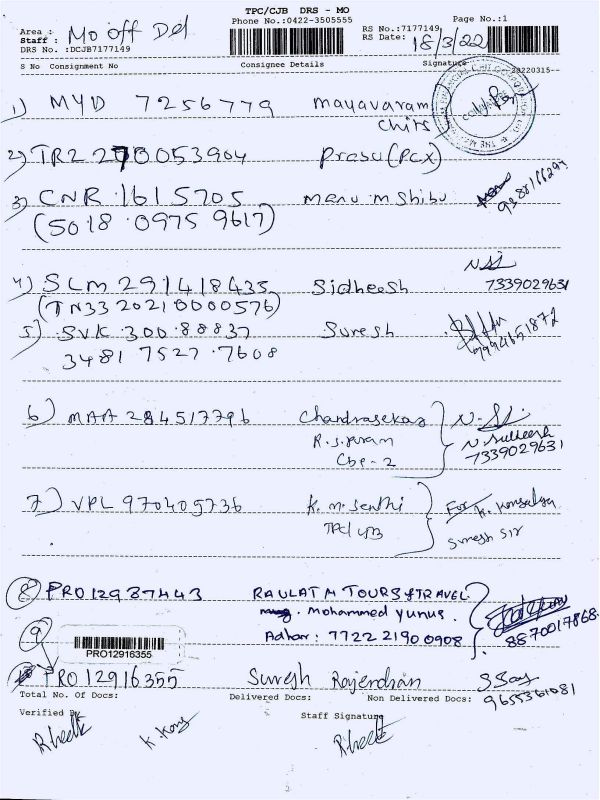 TPC/CJB DRS - MO
Phone No.:0422-3505555
Page No.:1
Area :
Staff : Mo off Del
DRS No. :DCJB7177149
RS No.:7177149
RS Date: 18/3/22
S No Consignment No Consignee Details Signature
20220315--
1) MYD 7256779 mayavaram
chits
2) TRZ 270053904 Prasu (PCX)
3) CNR 1615705 manu m Shibu
(5018 0975 9617)
4) SLM 291418435 Sidheesh 7339029631
(TN33 20210000576)
5) SVK 300 88837 Suresh 7994651872
3481 7527 7608
6) MAA 284517796 Chandrasekar
R.S. puram N. Sudheesh
Cbe-2 7339029631
7) VPL 970405736 K. m. Senthi For K. Kongalya
Suresh Sir
8) PRO12987443 RAULAT M TOURS & TRAVEL
Mohammed Yunus.
Adhar: 7722 2190 0908 8870017868
9
PRO12916355
PRO 12916355 Suresh Rajendran 9655361081
Total No. Of Docs: Delivered Docs: Non Delivered Docs:
Verified By Staff Signature
K. Kong